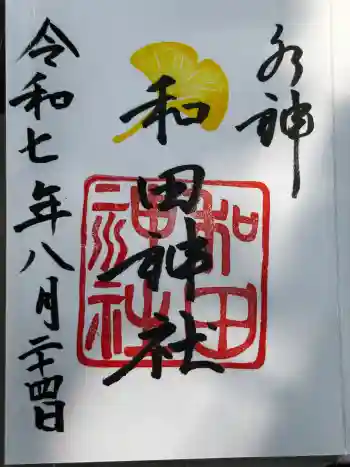 水神
和田神社
令和七年八月二十四日
和田
神社